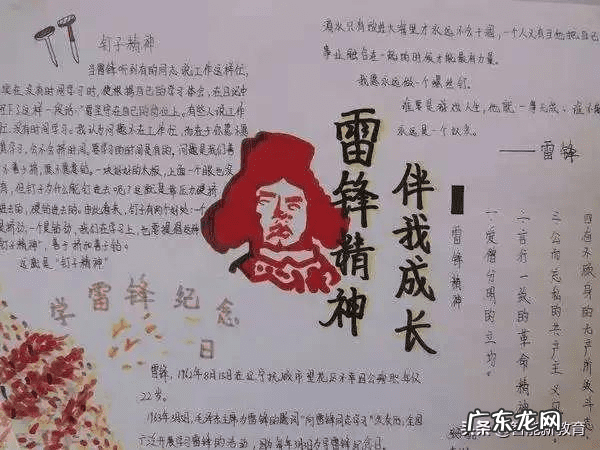 钉子精神
当雷锋听到有的同志说工作这样忙,
没有时间学习时,便根据自己的学习体会,在日记中
写下了这样一段话:"
有些人说工作
忙,没有时间学习。我认为问题不在工作忙,而在于你愿不愿
意学习,会不会挤时间。要学习的时间是有的,问题是我们善
不善于挤,愿不愿意钻。一块好好的木板,上面一个眼也没
有,但钉子为什么能钉进去呢?这就是靠压力硬挤
进去的,硬钻进去的。由此看来,钉子有两个好处:一个
是挤劲,一个是钻劲,我们在学习上,也要提倡这种"
钉子精神",善于挤和善于钻。
这就是"钉子精神"
学雷锋纪念
日
雷锋,1962年8月15日在辽宁抚顺市望花区不幸因公殉职,年仅
22岁。
1963年3月5日,毛泽东主席为雷锋的题词"向雷锋同志学习"发表后,全国
广泛开展学习雷锋的活动,
每年3月5日为学雷锋纪念日。
雷锋精神
伴我成长
滴水只有放进大海里才永远不会干涸,一个人只有当他把自己
事业融合在一起的时候才能最有力量。
我愿永远做一个螺丝钉。
谁要是游戏人生,他就一事无成,谁不
永远是一个奴隶。
——雷锋
雷锋精神
一、爱憎分明的立场。
二、言行一致的革命精神
三、公而忘私的共产主义风
四、奋不顾身的无产阶级斗志。
广东龙网